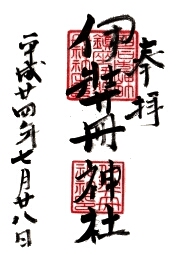 奉拝
伊弉冊神社
平成廿四年七月廿八日